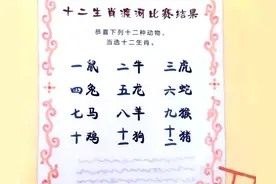 十二生肖渡河比赛结果
恭喜下列十二种动物，
当选十二生肖。
一鼠 二牛 三虎
四兔 五龙 六蛇
七马 八羊 九猴
十鸡 十一狗 十二猪